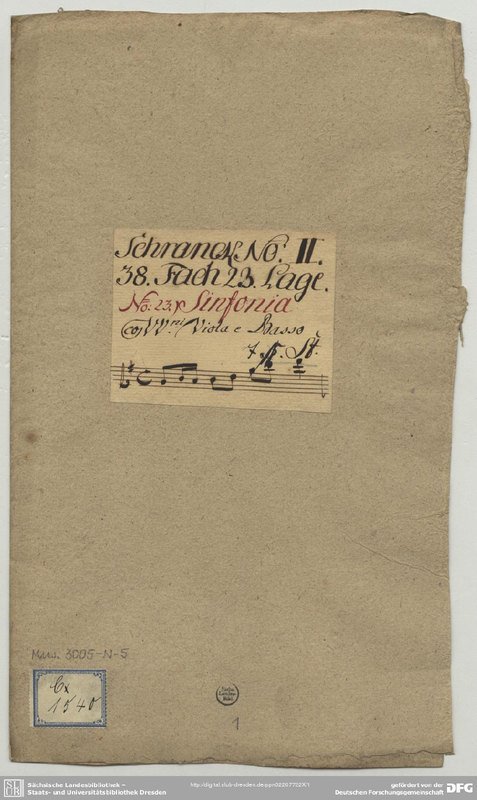 Schranck No: II.
38. Fach 23. Lage.
No: 23.) Sinfonia
con VV.ni Viola e Basso
7 St.
Mus. 3005-N-5
Cx
1540
1
Sächsische Landesbibliothek –
Staats- und Universitätsbibliothek Dresden
gefördert von der
Deutschen Forschungsgemeinschaft
DFG